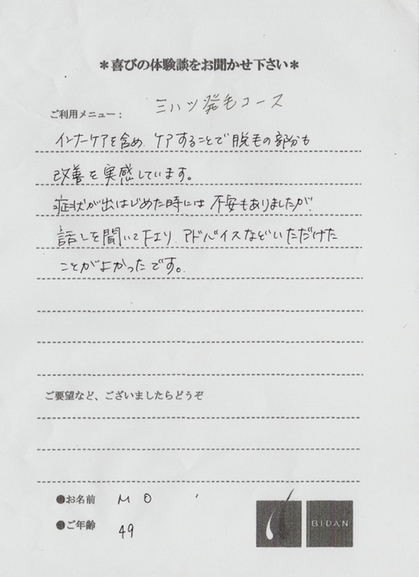 ＊喜びの体験談をお聞かせ下さい＊
ご利用メニュー： ミハツ発毛コース
インナーケアを含め ケアすることで脱毛の部分も
改善を実感しています。
症状が出はじめた時には 不安もありましたが
話しを聞いて下エリ アドバイスなどいただけた
ことがよかったです。
ご要望など、ございましたらどうぞ
●お名前 M O
●ご年齢 49
BIDAN